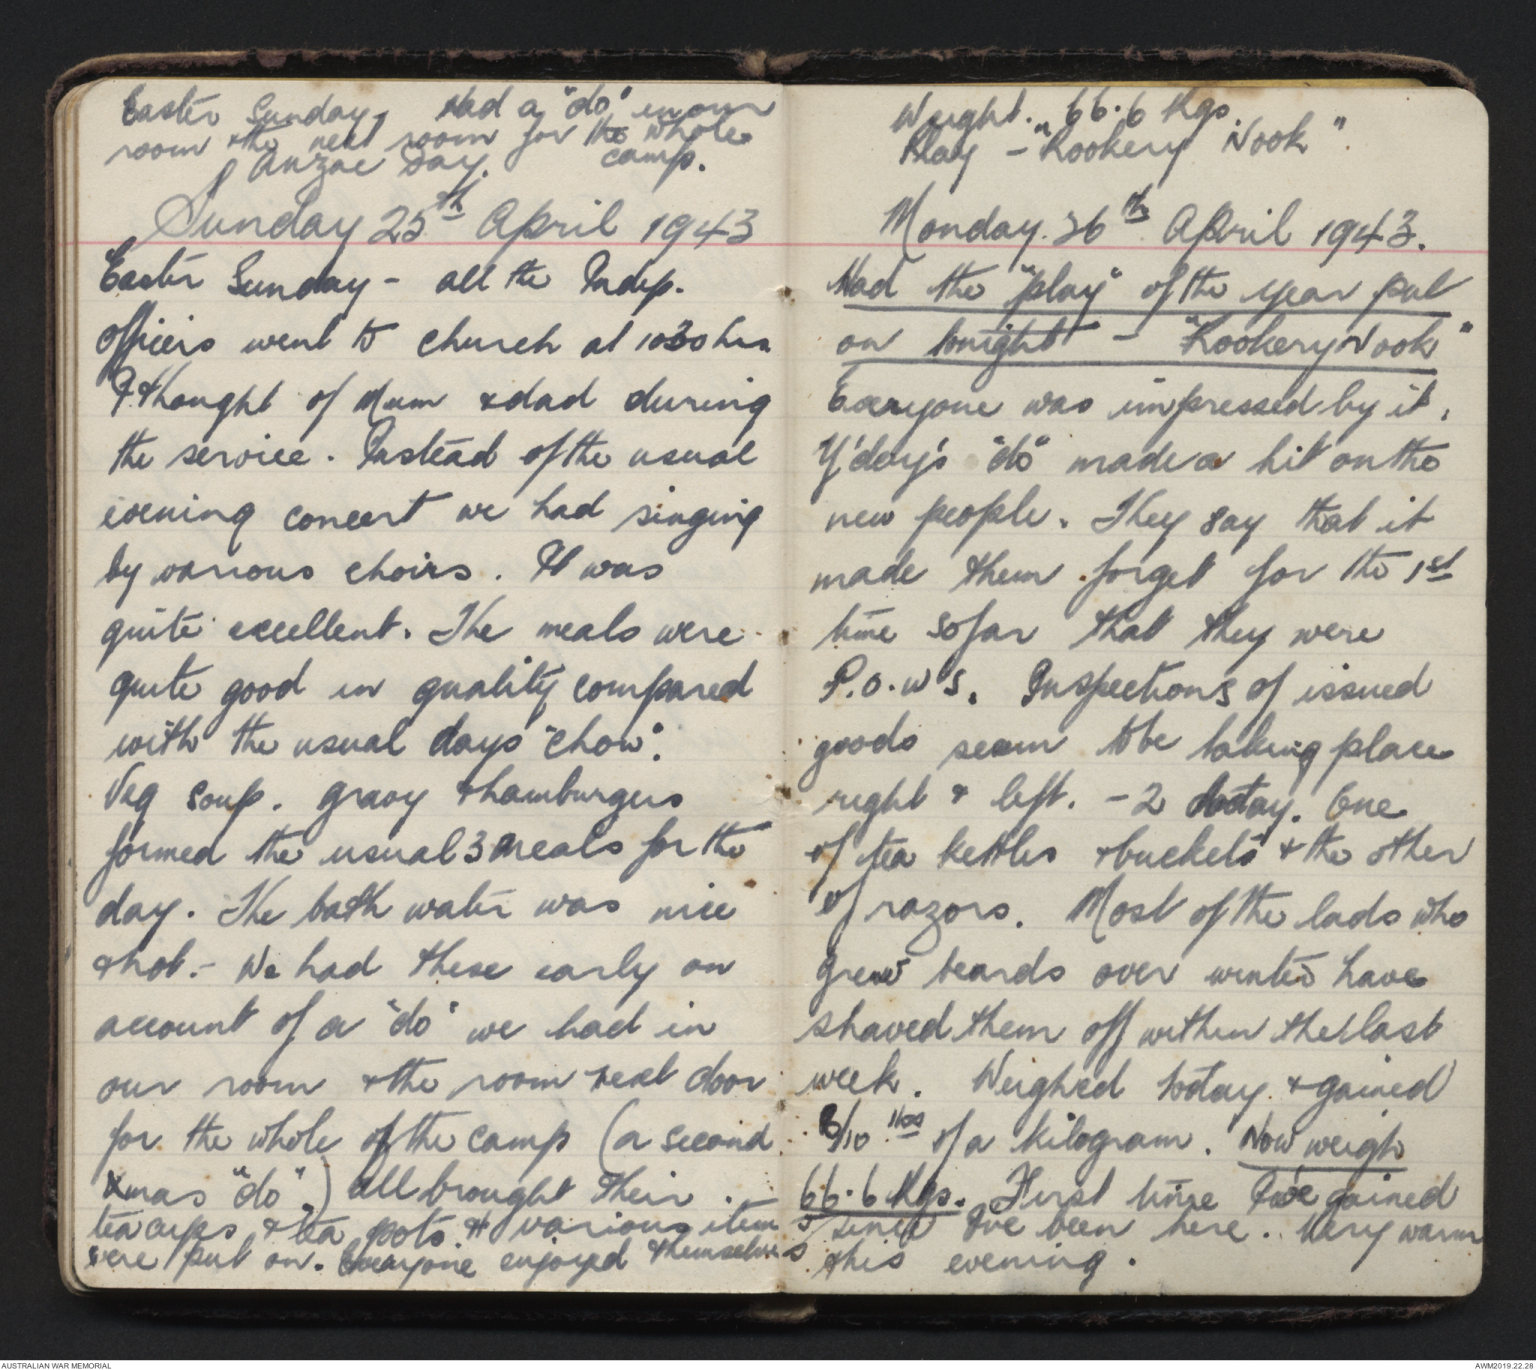 Easter Sunday. Had a "do" in our
room & the next room for the whole
Anzac Day. camp.
Sunday 25th April 1943
Easter Sunday - all the Indep.
officers went to church at 1030 hrs.
I thought of Mum & dad during
the service. Instead of the usual
evening concert we had singing
by various choirs. It was
quite excellent. The meals were
quite good in quality compared
with the usual days "chow".
Veg soup. gravy & hamburgers
formed the usual 3 meals for the
day. The bath water was nice
& hot. - We had these early on
account of a "do" we had in
our room & the room next door
for the whole of the camp (a second
Xmas "do".) All brought their
tea cups & tea pots & various items
were put on. Everyone enjoyed themselves
Weight. 66.6 Kgs
Play - "Rookery Nook".
Monday 26th April 1943.
Had the "play" of the year put
on tonight - "Rookery Nook"
Everyone was impressed by it.
Y'day's "do" made a hit on the
new people. They say that it
made them forget for the 1st
time so far that they were
P.O.W's. Inspections of issued
goods seem to be taking place
right & left. - 2 today. One
of tea kettles & buckets & the other
of razors. Most of the lads who
grew beards over winter have
shaved them off within the last
week. Weighed today & gained
/10 of a kilogram. Now weigh
66.6 Kgs. First time I've gained
since I've been here. Very warm
this evening.
AUSTRALIAN WAR MEMORIAL
AWM2019.22.28